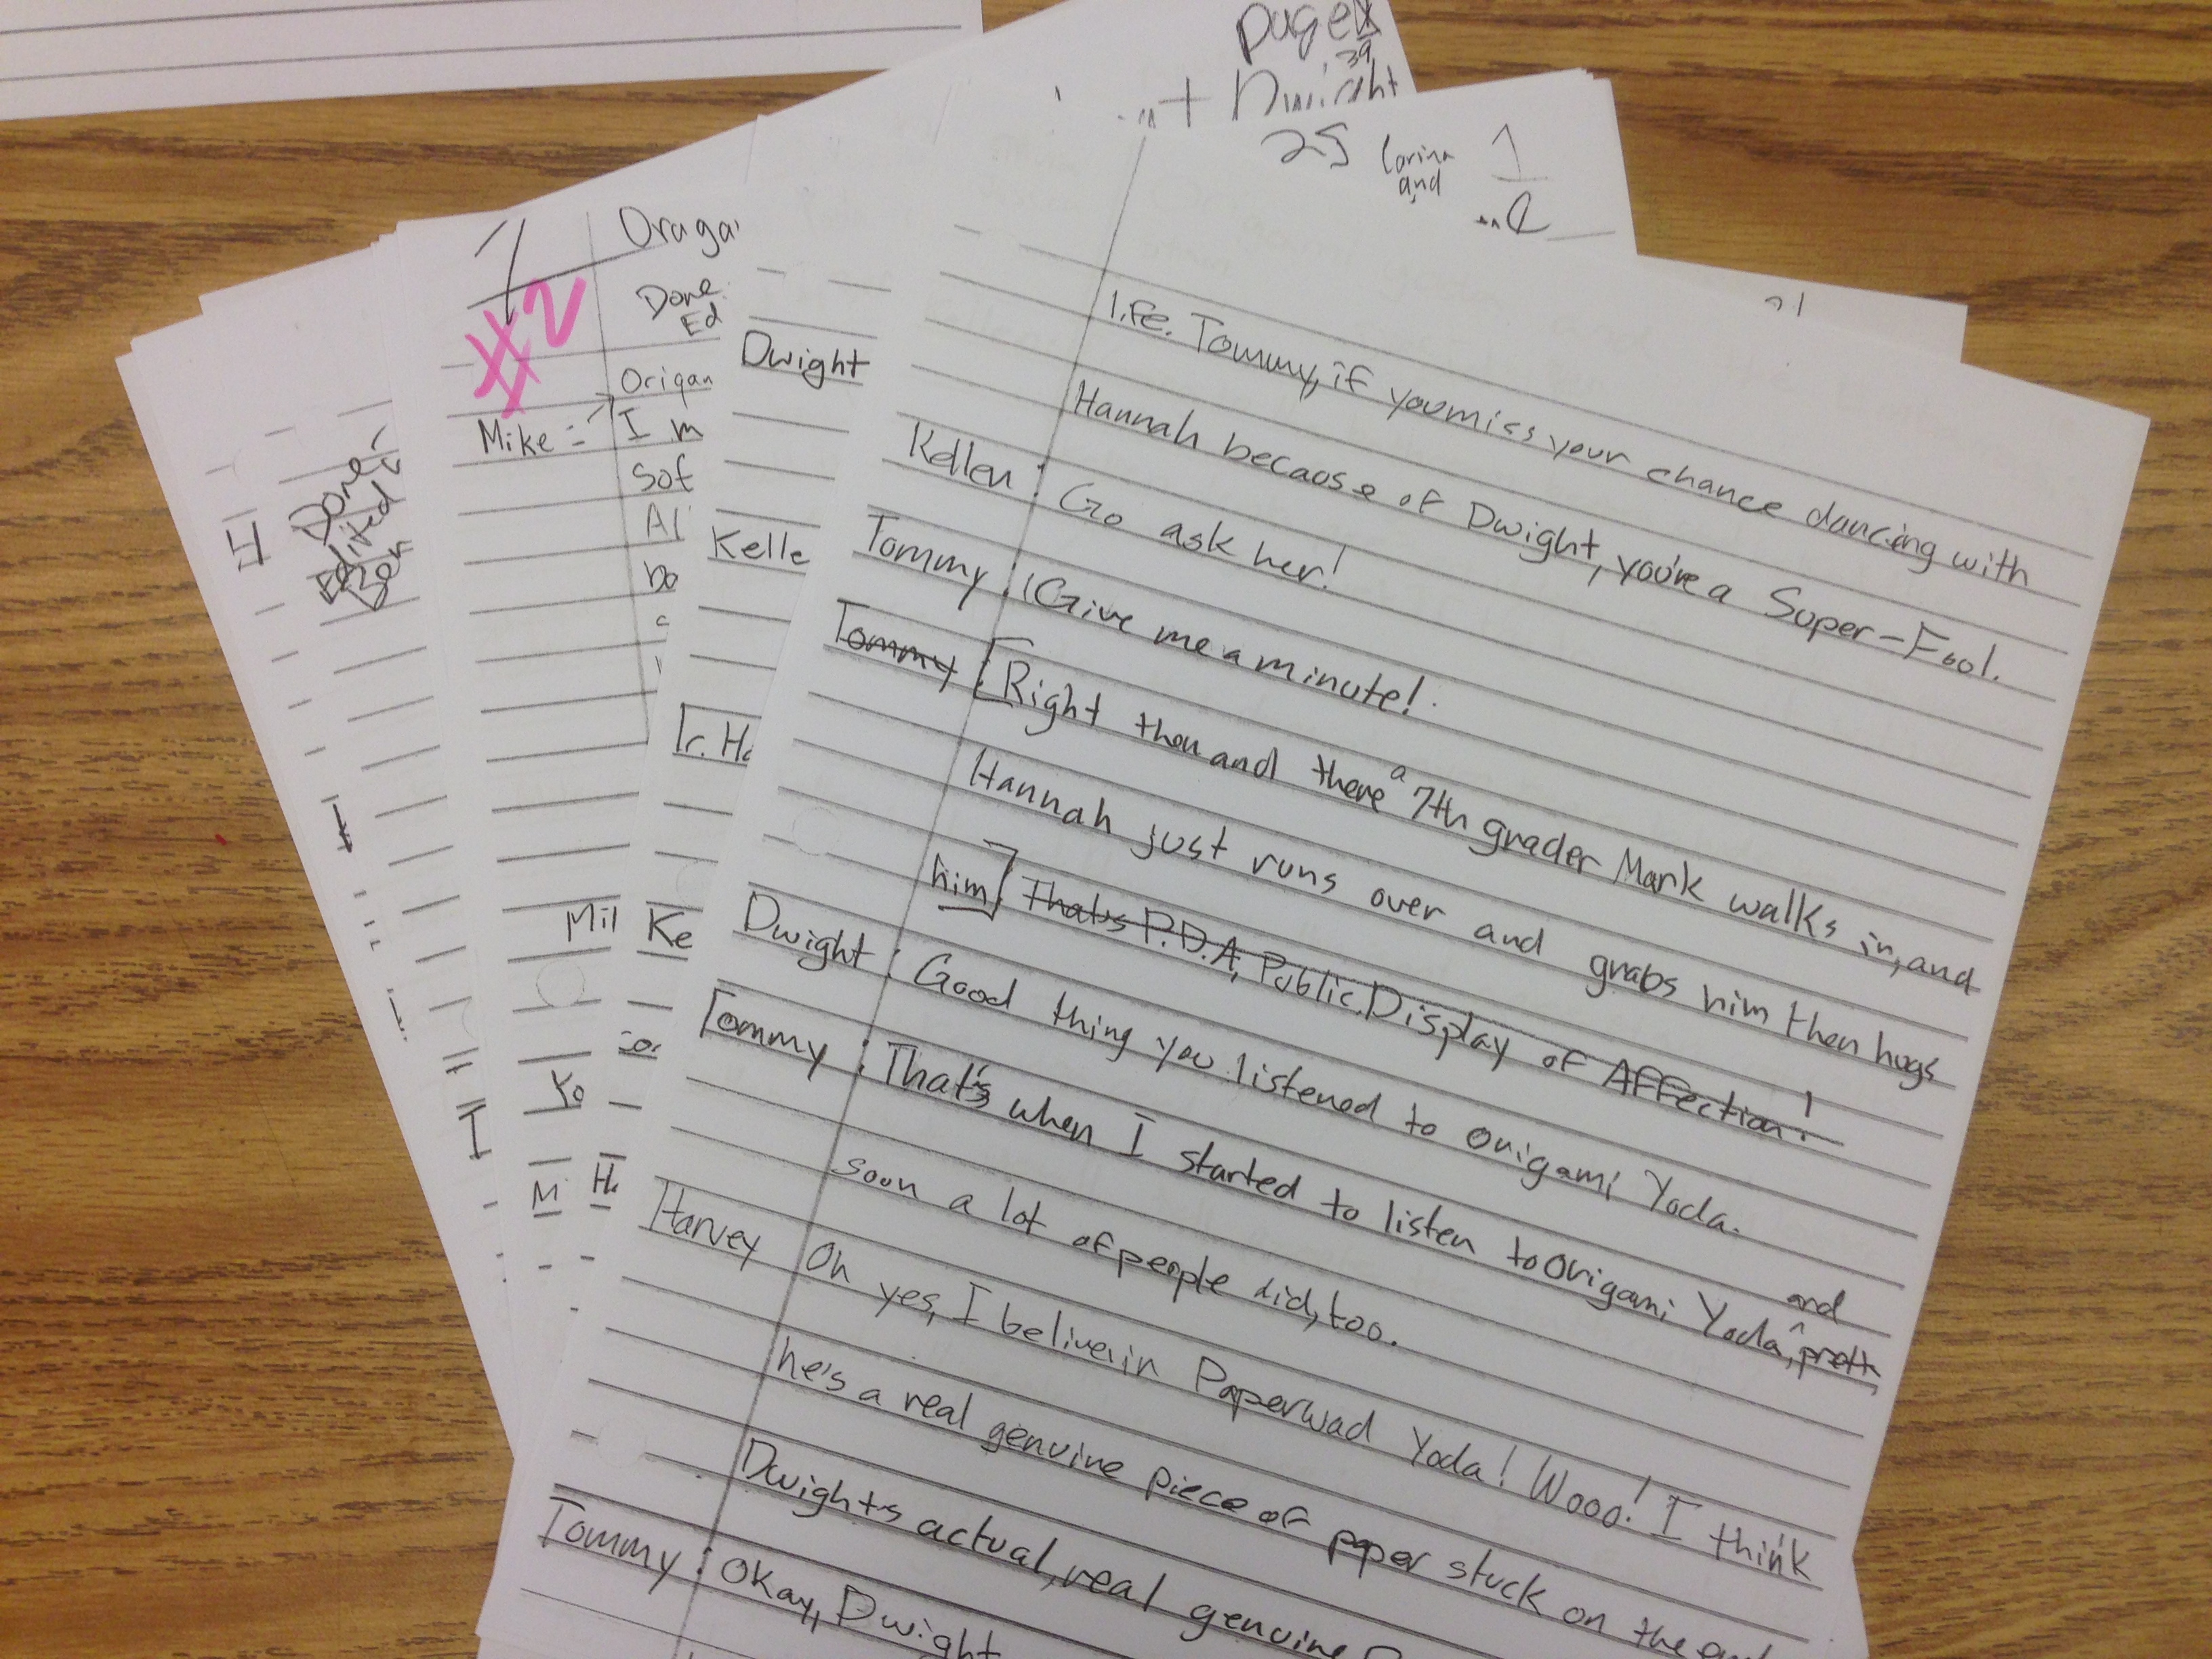 page
39
Dwight
25
Corina
and
1
life. Tommy, if you miss your chance dancing with
Hannah because of Dwight, you're a Super-Fool.
Kellen: Go ask her!
Tommy: Give me a minute!
Tommy: [Right then and there a 7th grader Mark walks in, and
Hannah just runs over and grabs him then hugs
him] Thats P.D.A, Public Display of Affection!
Dwight: Good thing you listened to Origami Yoda.
Tommy: That's when I started to listen to Origami Yoda, and
soon a lot of people did, too.
Harvey Oh yes, I belive in Paperwad Yoda! Wooo! I think
he's a real genuine piece of paper stuck on the end
Dwight's actual, real genuine
Tommy: Okay, Dwight
Dwight
Kelle
Ke
1
#2
Done
Ed
Origam
Mike:
I m
Sof
Al
Mil
Yo
M
H
4
Done
Edited
Ben
I